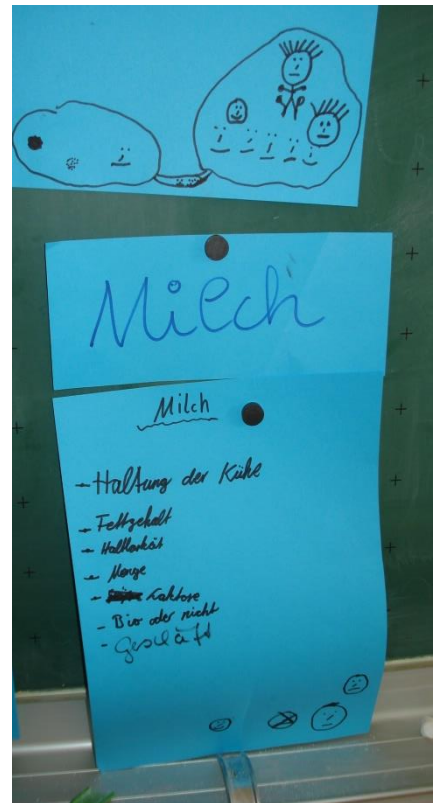 Milch
Milch
- Haltung der Kühe
- Fettgehalt
- Haltbarkeit
- Menge
- Laktose
- Bio oder nicht
- Geschäft